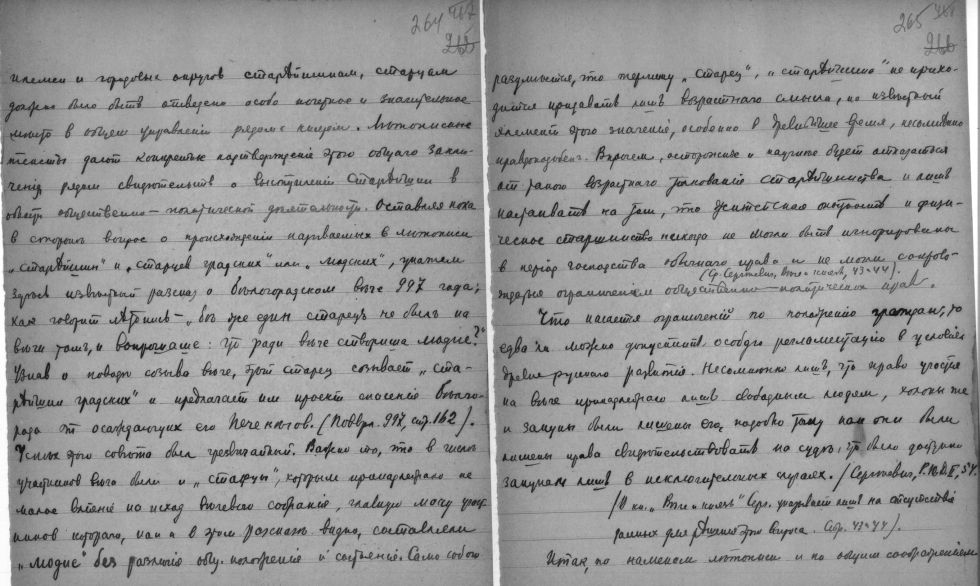 264
племен и городовых округов старѣйшинам, старцам
должно было быть отведено особо почетное и значительное
мѣсто в общем управленіи рядом с князем. Лѣтописные
тексты дают конкретные подтвержденіе этого общаго заклю-
ченія рядом свидѣтельств о выступленіи старѣйшин в
области общественно-политической дѣятельности. Оставляя пока
в стороне вопрос о происхожденіи называемых в лѣтописи
„старѣйшин" и „старцев градских" или „людских", укажем
здѣсь извѣстный разсказ о бѣлогородском вѣче 997 года;
как говорит лѣтопись – „бѣ же един старець не был на
вѣчи том, и вопрошаше: что ради вѣче створиша людие?"
Узнав о поводѣ созыва вѣче, этот старец созывает „ста-
рѣйшин градских" и предлагает им проект спасенія Бѣлго-
рода от осаждающих его Печенѣгов. (Пов.вр. 997, стр. 162).
Успѣх этого совѣта был чрезвычайный. Важно то, что в числѣ
участников вѣча были и „старцы", которым принадлежало не
малое вліяніе на исход вѣчевого собранія, главную массу участ-
ников котораго, как и в этом разсказѣ видно, составляли
„людие" без различія общ. положенія и состоянія. Само собою
265
266
разумѣется, что термину „старец", „старѣйшина" не прихо-
дится придавать лишь возрастнаго смысла, но извѣстный
элемент этого значенія, особенно в древнѣйшее время, несомнѣнно
правдоподобен. Впрочем, осторожнѣе и научнѣе будет отказаться
от такого возрастнаго толкованія старѣйшинства и лишь
настаивать на том, что житейская опытность и физи-
ческое старшинство некогда не могли быть игнорированы
в період господства обычнаго права и не могли сопрово-
(Ср. Сергѣевич, Вѣче и князь, 43-44).
ждаться ограниченіем общественно-политических прав.
Что касается ограниченій по положенію граждан, то
едва ли можно допустить особую регламентацію в условіях
древнерусского развитія. Несомнѣнно лишь, что право участія
на вѣче принадлежало лишь свободным людям, холопы же
и закупы были лишены его, подобно тому как они были
лишены права свидѣтельствовать на судѣ; это было допущено
закупам лишь в исключительных случаях. (Сергѣевич,
(В кн. „Вѣче и князь" Серг. указывает лишь на отсутствіе
данных для рѣшенія этого вопроса. Стр. 43-44).
Итак, по намекам лѣтописи и по общим соображеніям